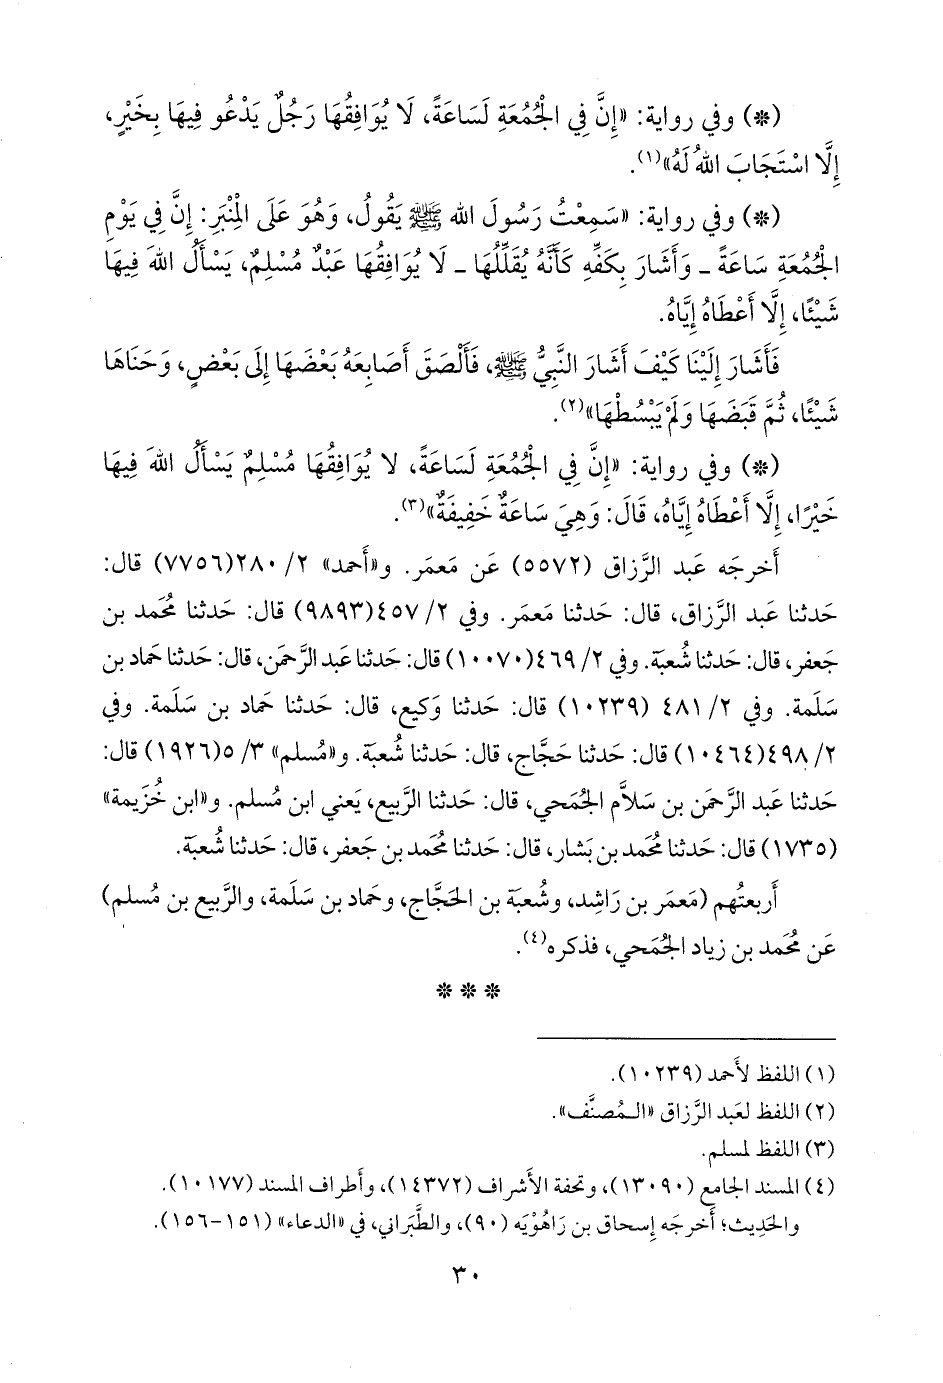 (*) وفي رواية: «إِنَّ فِي الْجُمُعَةِ لَسَاعَةً، لَا يُوَافِقُهَا رَجُلٌ يَدْعُو فِيهَا بِخَيْرٍ،
إِلَّا اسْتَجَابَ اللهُ لَهُ»(١).
(*) وفي رواية: «سَمِعْتُ رَسُولَ اللهِ ﷺ يَقُولُ، وَهُوَ عَلَى الْمِنْبَرِ: إِنَّ فِي يَوْمِ
الْجُمُعَةِ سَاعَةً - وَأَشَارَ بِكَفِّهِ كَأَنَّهُ يُقَلِّلُهَا - لَا يُوَافِقُهَا عَبْدٌ مُسْلِمٌ، يَسْأَلُ اللهَ فِيهَا
شَيْئًا، إِلَّا أَعْطَاهُ إِيَّاهُ.
فَأَشَارَ إِلَيْنَا كَيْفَ أَشَارَ النَّبِيُّ ﷺ، فَأَلْصَقَ أَصَابِعَهُ بَعْضَهَا إِلَى بَعْضٍ، وَحَنَاهَا
شَيْئًا، ثُمَّ قَبَضَهَا وَلَمْ يَبْسُطْهَا»(٢).
(*) وفي رواية: «إِنَّ فِي الْجُمُعَةِ لَسَاعَةً، لا يُوَافِقُهَا مُسْلِمٌ يَسْأَلُ اللهَ فِيهَا
خَيْرًا، إِلَّا أَعْطَاهُ إِيَّاهُ، قَالَ: وَهِيَ سَاعَةٌ خَفِيفَةٌ»(٣).
أَخرجَه عَبد الرَّزاق (٥٥٧٢) عَن مَعمَر. و«أَحمد» ٢/ ٢٨٠(٧٧٥٦) قال:
حَدثنا عَبد الرَّزاق، قال: حَدثنا مَعمَر. وفي ٢/ ٤٥٧(٩٨٩٣) قال: حَدثنا مُحمد بن
جَعفر، قال: حَدثنا شُعبة. وفي ٢/ ٤٦٩(١٠٠٧٠) قال: حَدثنا عَبد الرَّحمَن، قال: حَدثنا حَماد بن
سَلَمة. وفي ٢/ ٤٨١ (١٠٢٣٩) قال: حَدثنا وَكيع، قال: حَدثنا حَماد بن سَلَمة. وفي
٢/ ٤٩٨(١٠٤٦٤) قال: حَدثنا حَجَّاج، قال: حَدثنا شُعبة. و«مُسلم» ٣/ ٥(١٩٢٦) قال:
حَدثنا عَبد الرَّحمَن بن سَلاَّم الجُمَحي، قال: حَدثنا الرَّبيع، يَعني ابن مُسلم. و«ابن خُزيمة»
(١٧٣٥) قال: حَدثنا مُحمد بن بَشار، قال: حَدثنا مُحمد بن جَعفر، قال: حَدثنا شُعبة.
أَربعتُهم (مَعمَر بن رَاشِد، وشُعبة بن الحَجَّاج، وحَماد بن سَلَمة، والرَّبيع بن مُسلم)
عَن مُحَمد بن زياد الجُمَحي، فذكره(٤).
* * *
(١) اللفظ لأَحمد (١٠٢٣٩).
(٢) اللفظ لعَبد الرَّزاق «الـمُصنَّف».
(٣) اللفظ لمسلم.
(٤) المسند الجامع (١٣٠٩٠)، وتحفة الأَشراف (١٤٣٧٢)، وأَطراف المسند (١٠١٧٧).
والحَدِيث؛ أَخرجَه إِسحاق بن رَاهُوْيَه (٩٠)، والطَّبَراني، في «الدعاء» (١٥١-١٥٦).
٣٠